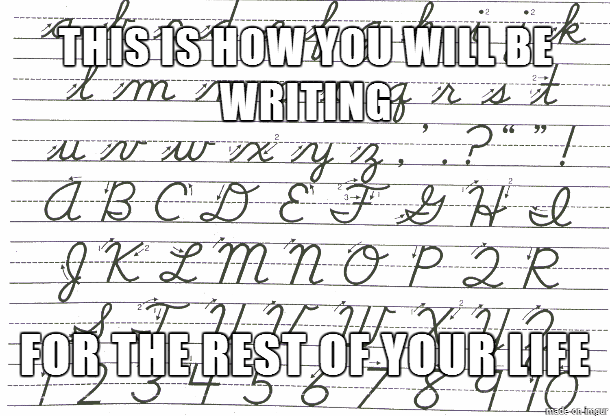 a b c d e f g h i j k
THIS IS HOW YOU WILL BE
l m n o p q r s t
WRITING
u v w x y z , ' . ? “ ” !
A B C D E F G H I
J K L M N O P Q R
S T U V W X Y Z
FOR THE REST OF YOUR LIFE
1 2 3 4 5 6 7 8 9 10
made on imgur